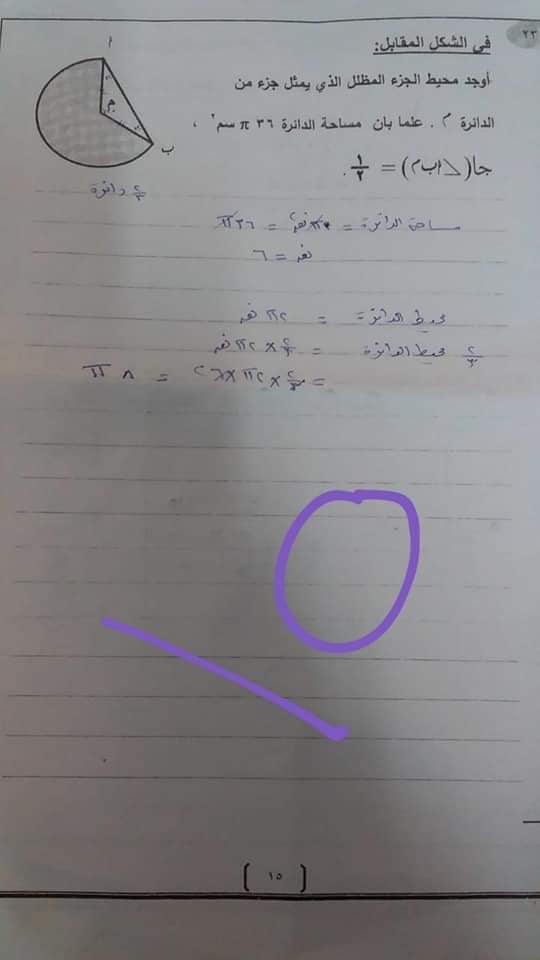 ٢٣
في الشكل المقابل:
أوجد محيط الجزء المظلل الذي يمثل جزء من
الدائرة م . علما بان مساحة الدائرة ٣٦ π سم٢ ،
جا(∠ ا ب م) = ١/٢ .
ا
م
ب
٢/٣ دائرة
مساحة الدائرة = π نق٢ = ٣٦ π
نق = ٦
محيط الدائرة = ٢ π نق
٢/٣ محيط الدائرة = ٢/٣ × ٢ π نق
= ٢/٣ × ٢ π × ٦ = ٨ π
[ ١٥ ]